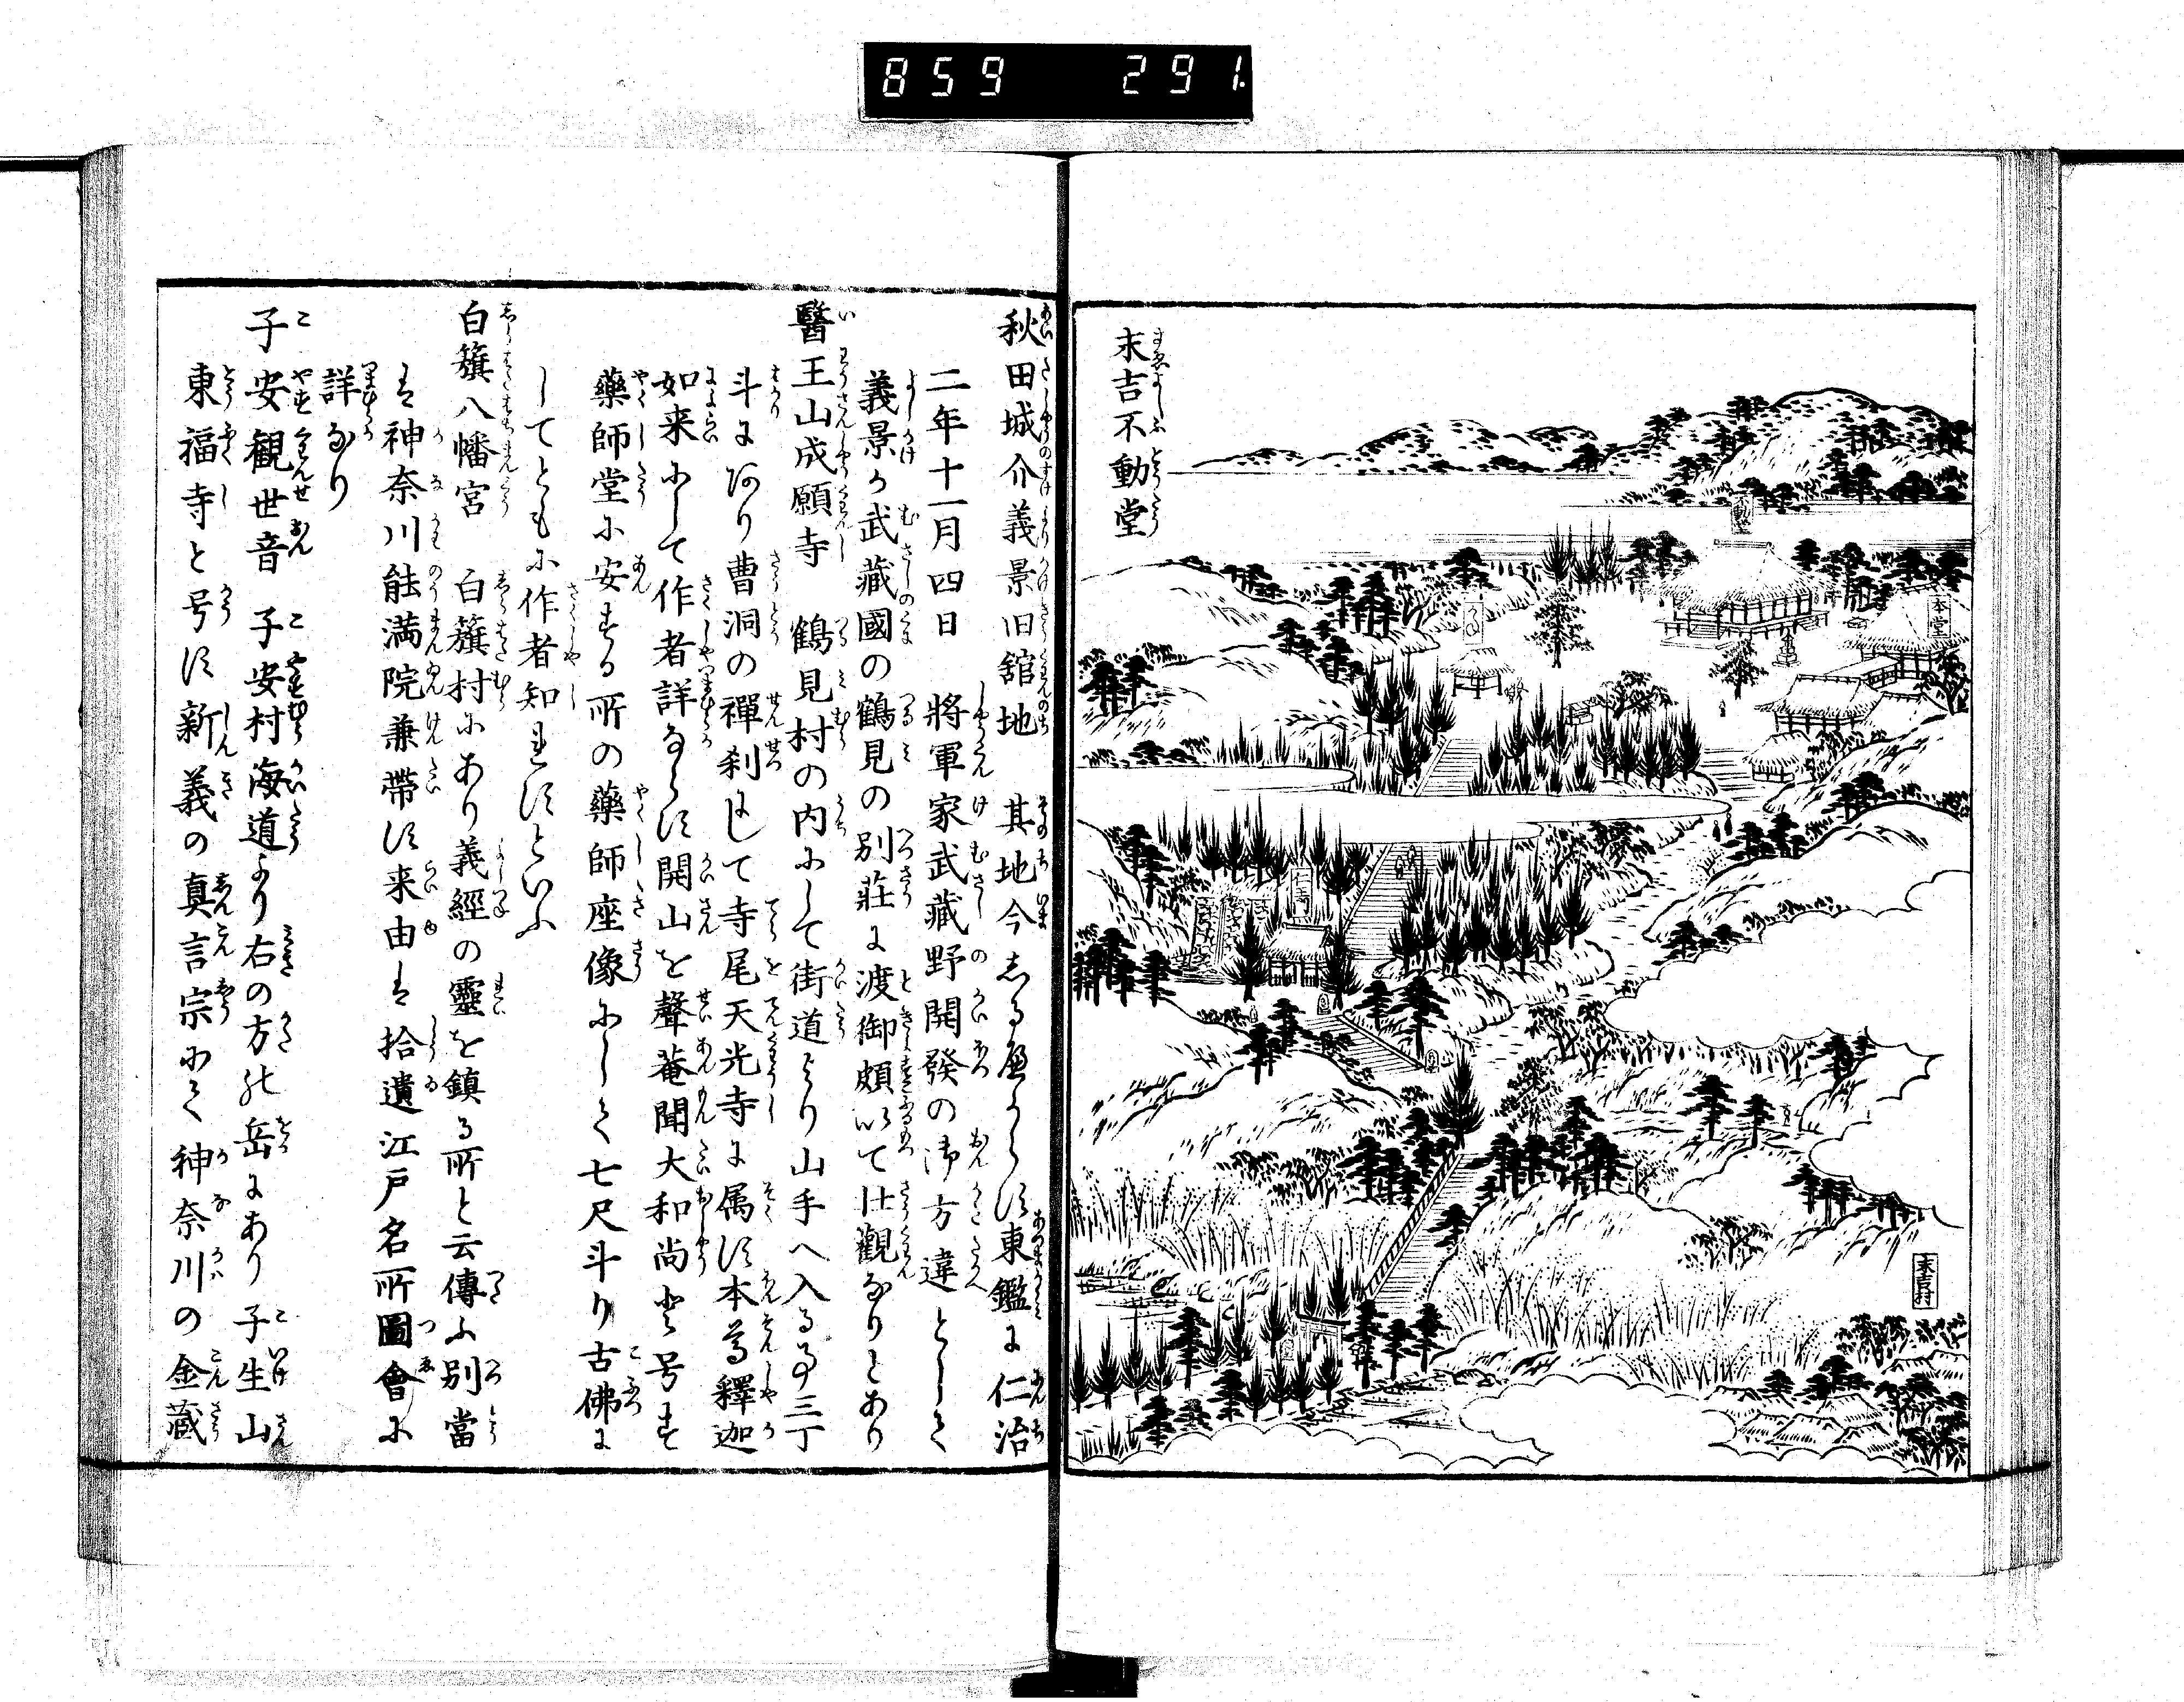 859 291.
末吉不動堂
本堂
末吉村
秋田城介義景旧舘地 其地今志る盤からす東鑑に仁治
二年十一月四日 將軍家武藏野開發の御方違として
義景か武藏國の鶴見の別莊に渡御頗以て壮観なりとあり
醫王山成願寺 鶴見村の内にして街道より山手へ入る事三丁
斗にあり曹洞の禪刹にして寺尾天光寺に属す本尊釋迦
如来にして作者詳ならす開山を聲菴聞大和尚と号す
藥師堂に安する所の藥師座像にして七尺斗り古佛に
してともに作者知れすといふ
白籏八幡宮 白籏村にあり義經の靈を鎮る所と云傳ふ別當
は神奈川能満院兼帶す来由は拾遺江戸名所圖會に
詳なり
子安觀世音 子安村海道より右の方の岳にあり子生山
東福寺と号す新義の真言宗にて神奈川の金藏